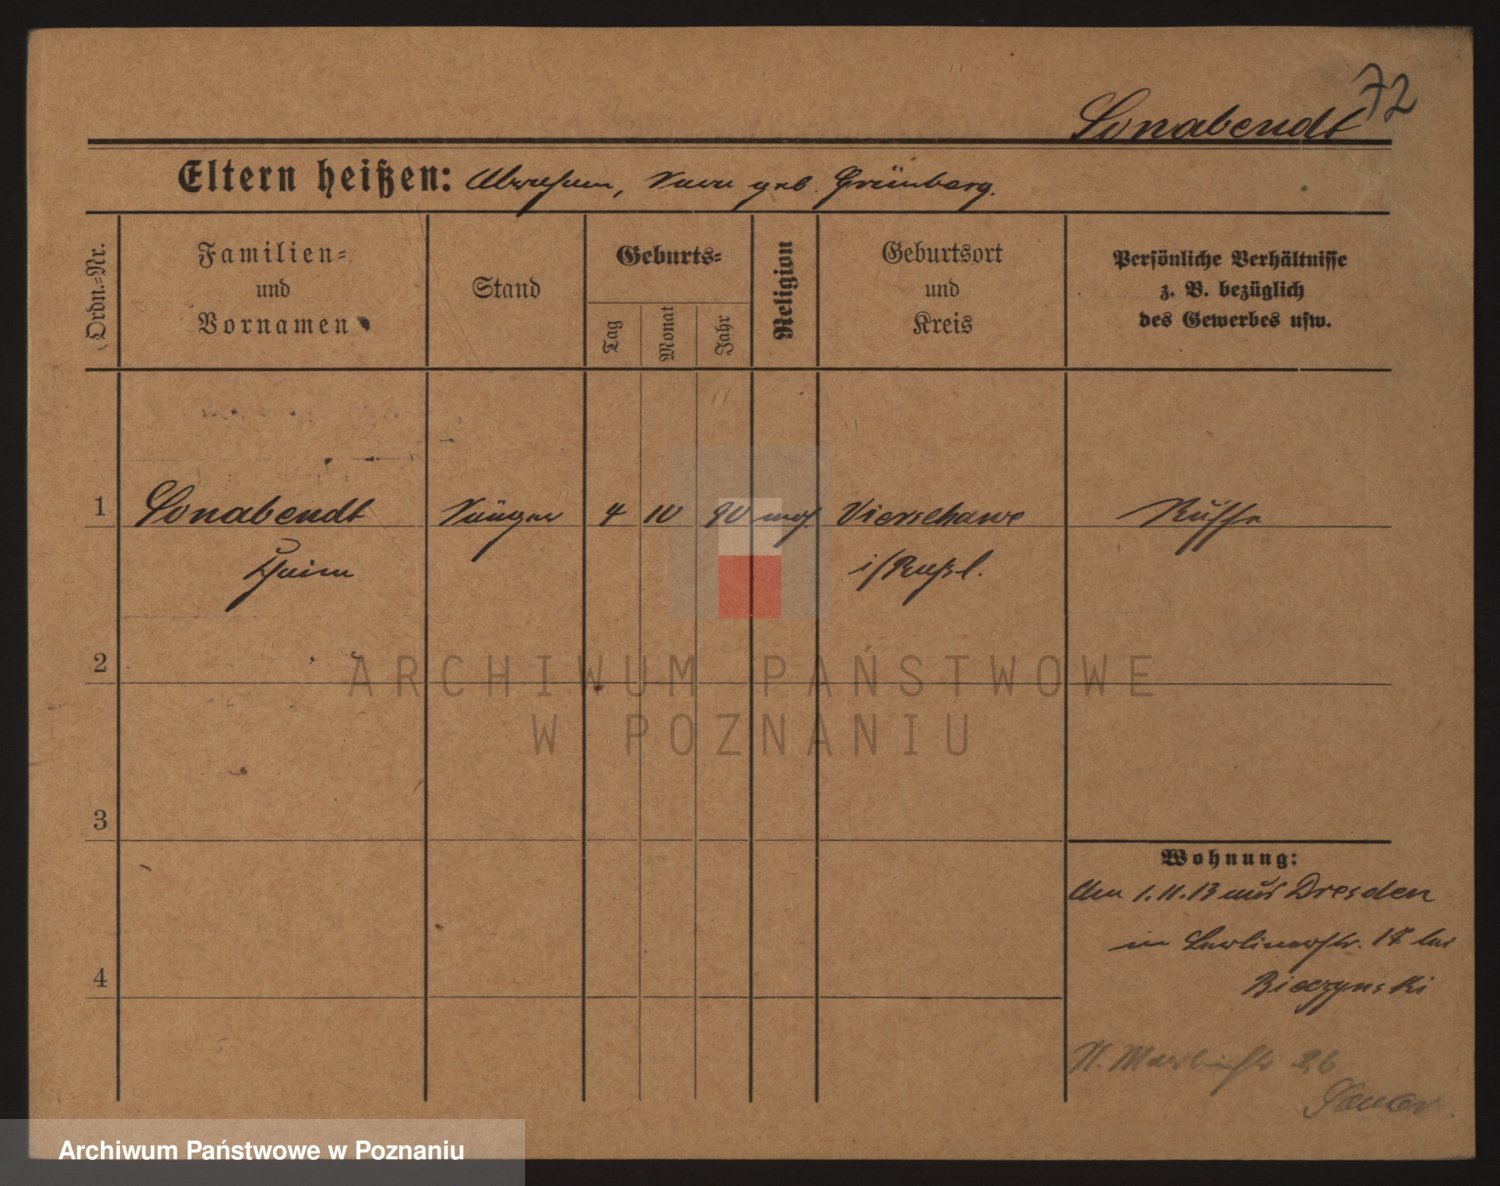 72
Sonabendt
Eltern heißen: Abraham, Sura geb. Grünberg.
Ordn.-Nr.
Familien-
und
Vornamen
Stand
Geburts-
Tag
Monat
Jahr
Religion
Geburtsort
und
Kreis
Persönliche Verhältnisse
z. B. bezüglich
des Gewerbes usw.
1 Sonabendt Sänger 4 10 90 mos. Vierschawe Russe
Chaim i/Rußl.
2
ARCHIWUM PAŃSTWOWE
W POZNANIU
3
Wohnung:
Am 1.11.13 aus Dresden
in Berlinerstr. 17 bei
4
Bieczynski
Archiwum Państwowe w Poznaniu